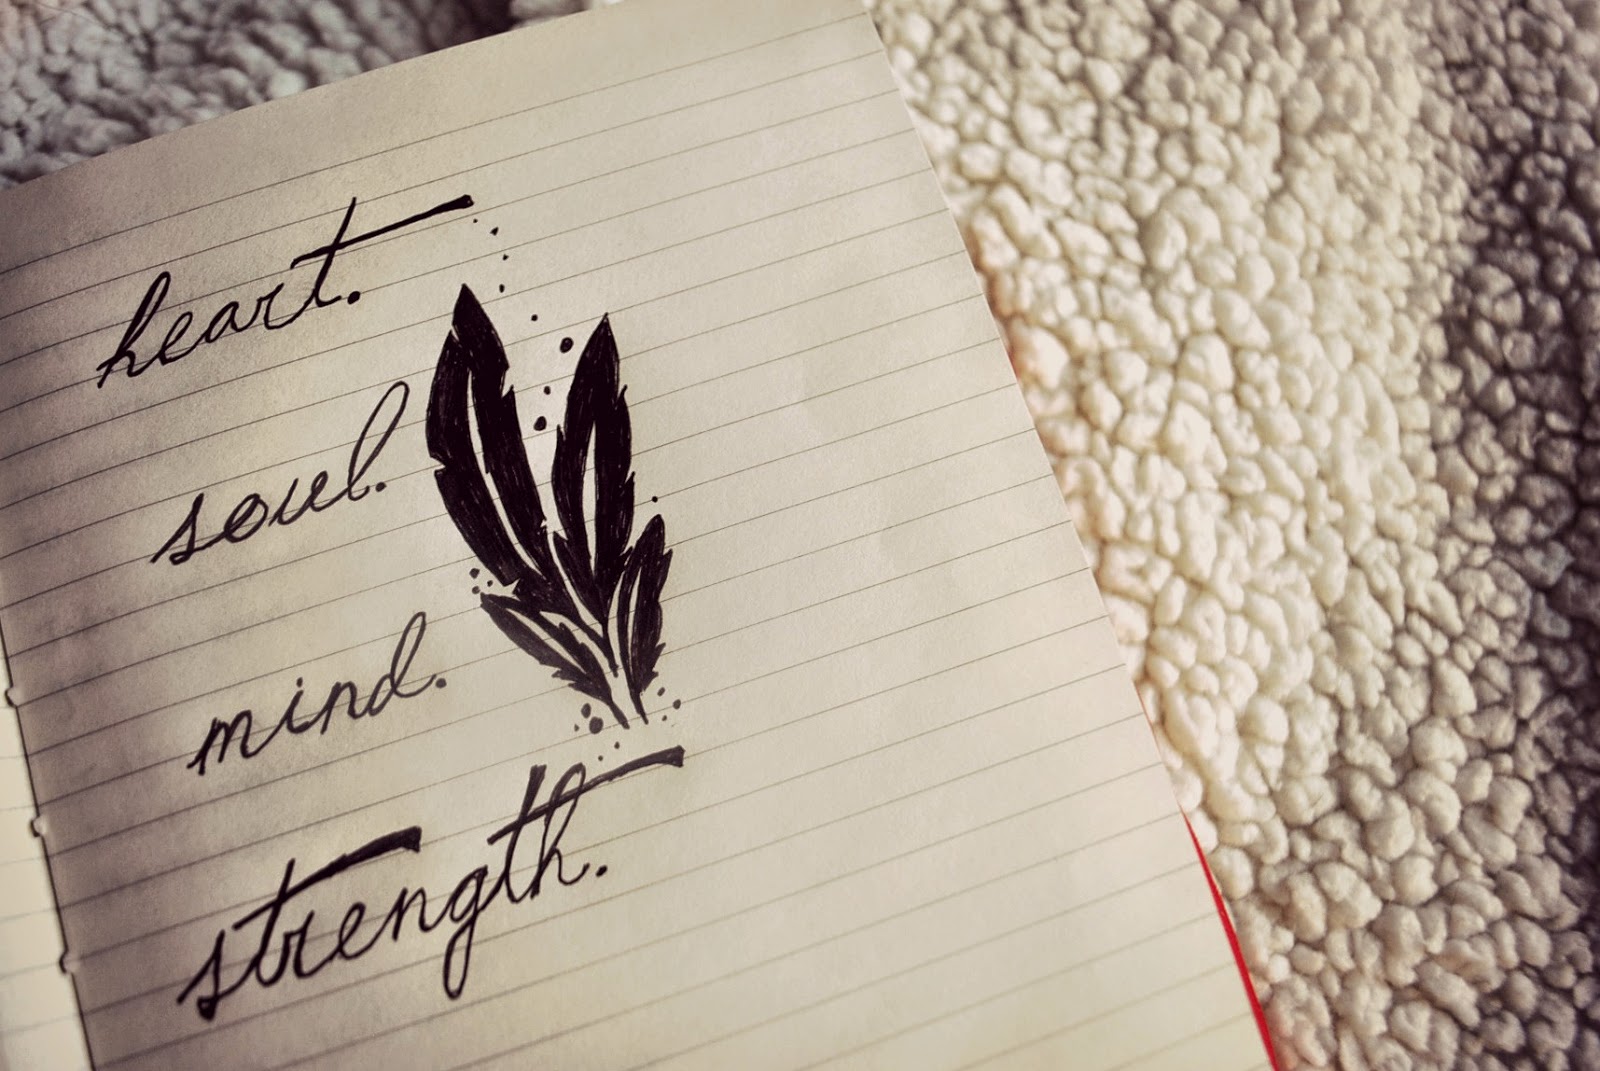 heart.
soul.
mind.
strength.